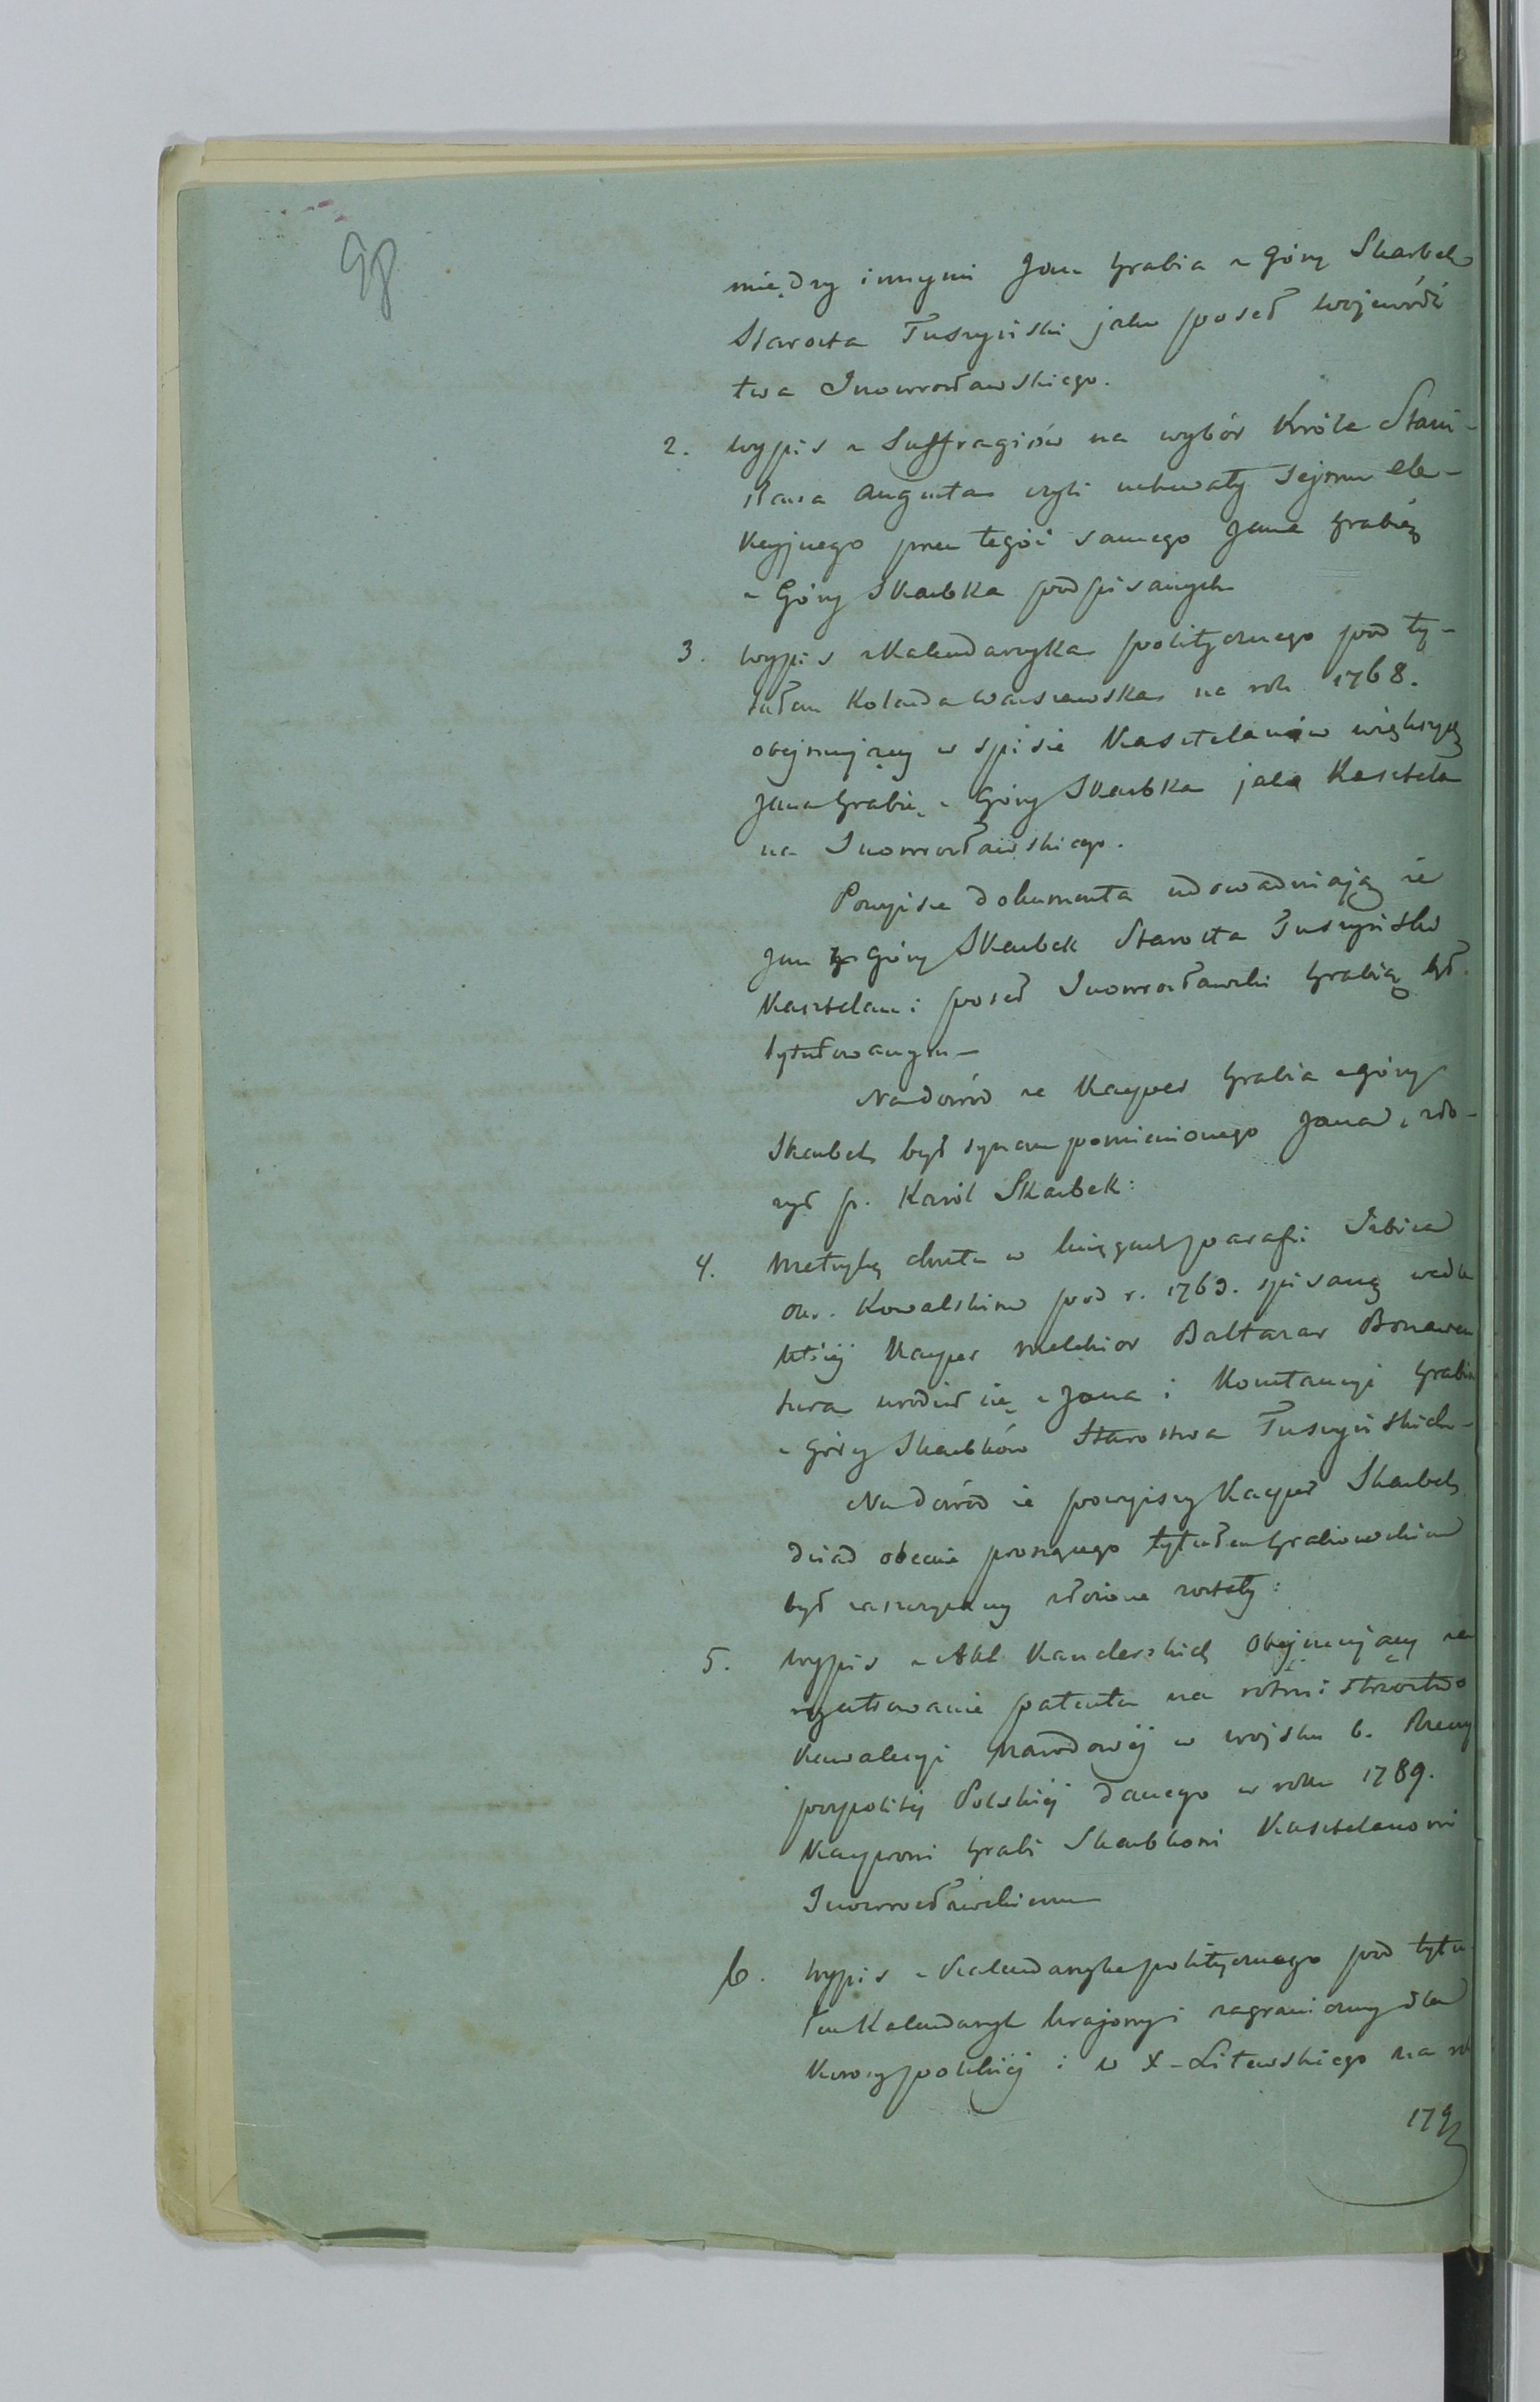 98
między innymi Jan hrabia z Góry Skarbek
Starosta Tuszyński jako poseł wojewódz
twa Inowrocławskiego.
2. wypis z Suffragiów na wybór Króla Stani-
sława Augusta czyli uchwały Sejmu ele-
kcyjnego przez tegóż samego Jana hrabię
z Góry Skarbka podpisanych
3. wypis z Kalendarzyka politycznego pod ty-
tułem Kolenda Warszawska na rok 1768.
obejmujący w spisie Kasztelanów większych
Jana hrabię z Góry Skarbka jako Kasztela
na Inowrocławskiego.
Powyższe dokumenta udowadniają że
Jan z Góry Skarbek Starosta Tuszyński
Kasztelan i poseł Inowrocławski hrabią był
tytułowanym -
Na dowód że Kacper hrabia z Góry
Skarbek był synem pomienionego Jana, zło-
żył p. Karól Skarbek:
4. Metrykę chrztu w księgach parafii Izbica
Ok. Kowalskim pod r. 1763. spisaną wedle
któréj Kacper Melchior Baltazar Bonawen
tura urodził się z Jana i Konstancyi hrabi
z Góry Skarbków Starostwa Tuszyńskich -
Na dowód że powyższy Kacper Skarbek
dziad obecnie proszącego tytułem hrabiowskim
był zaszczycany złożone zostały:
5. wypis z Akt Kanclerskich obejmujący za
rejestrowanie patentu na rotmistrzostwo
Kawaleryi Narodowéj w wojsku b. Rzeczy
pospolitéj Polskiéj danego w roku 1789.
Kacprowi hrabi Skarbkowi Kasztelanowi
Inowrocławskiemu
6. wypis z Kalendarzyka politycznego pod tytu
łem Kalendarzyk krajowy i zagraniczny dla
Korony polskiéj i W X-Litewskiego na rok
179